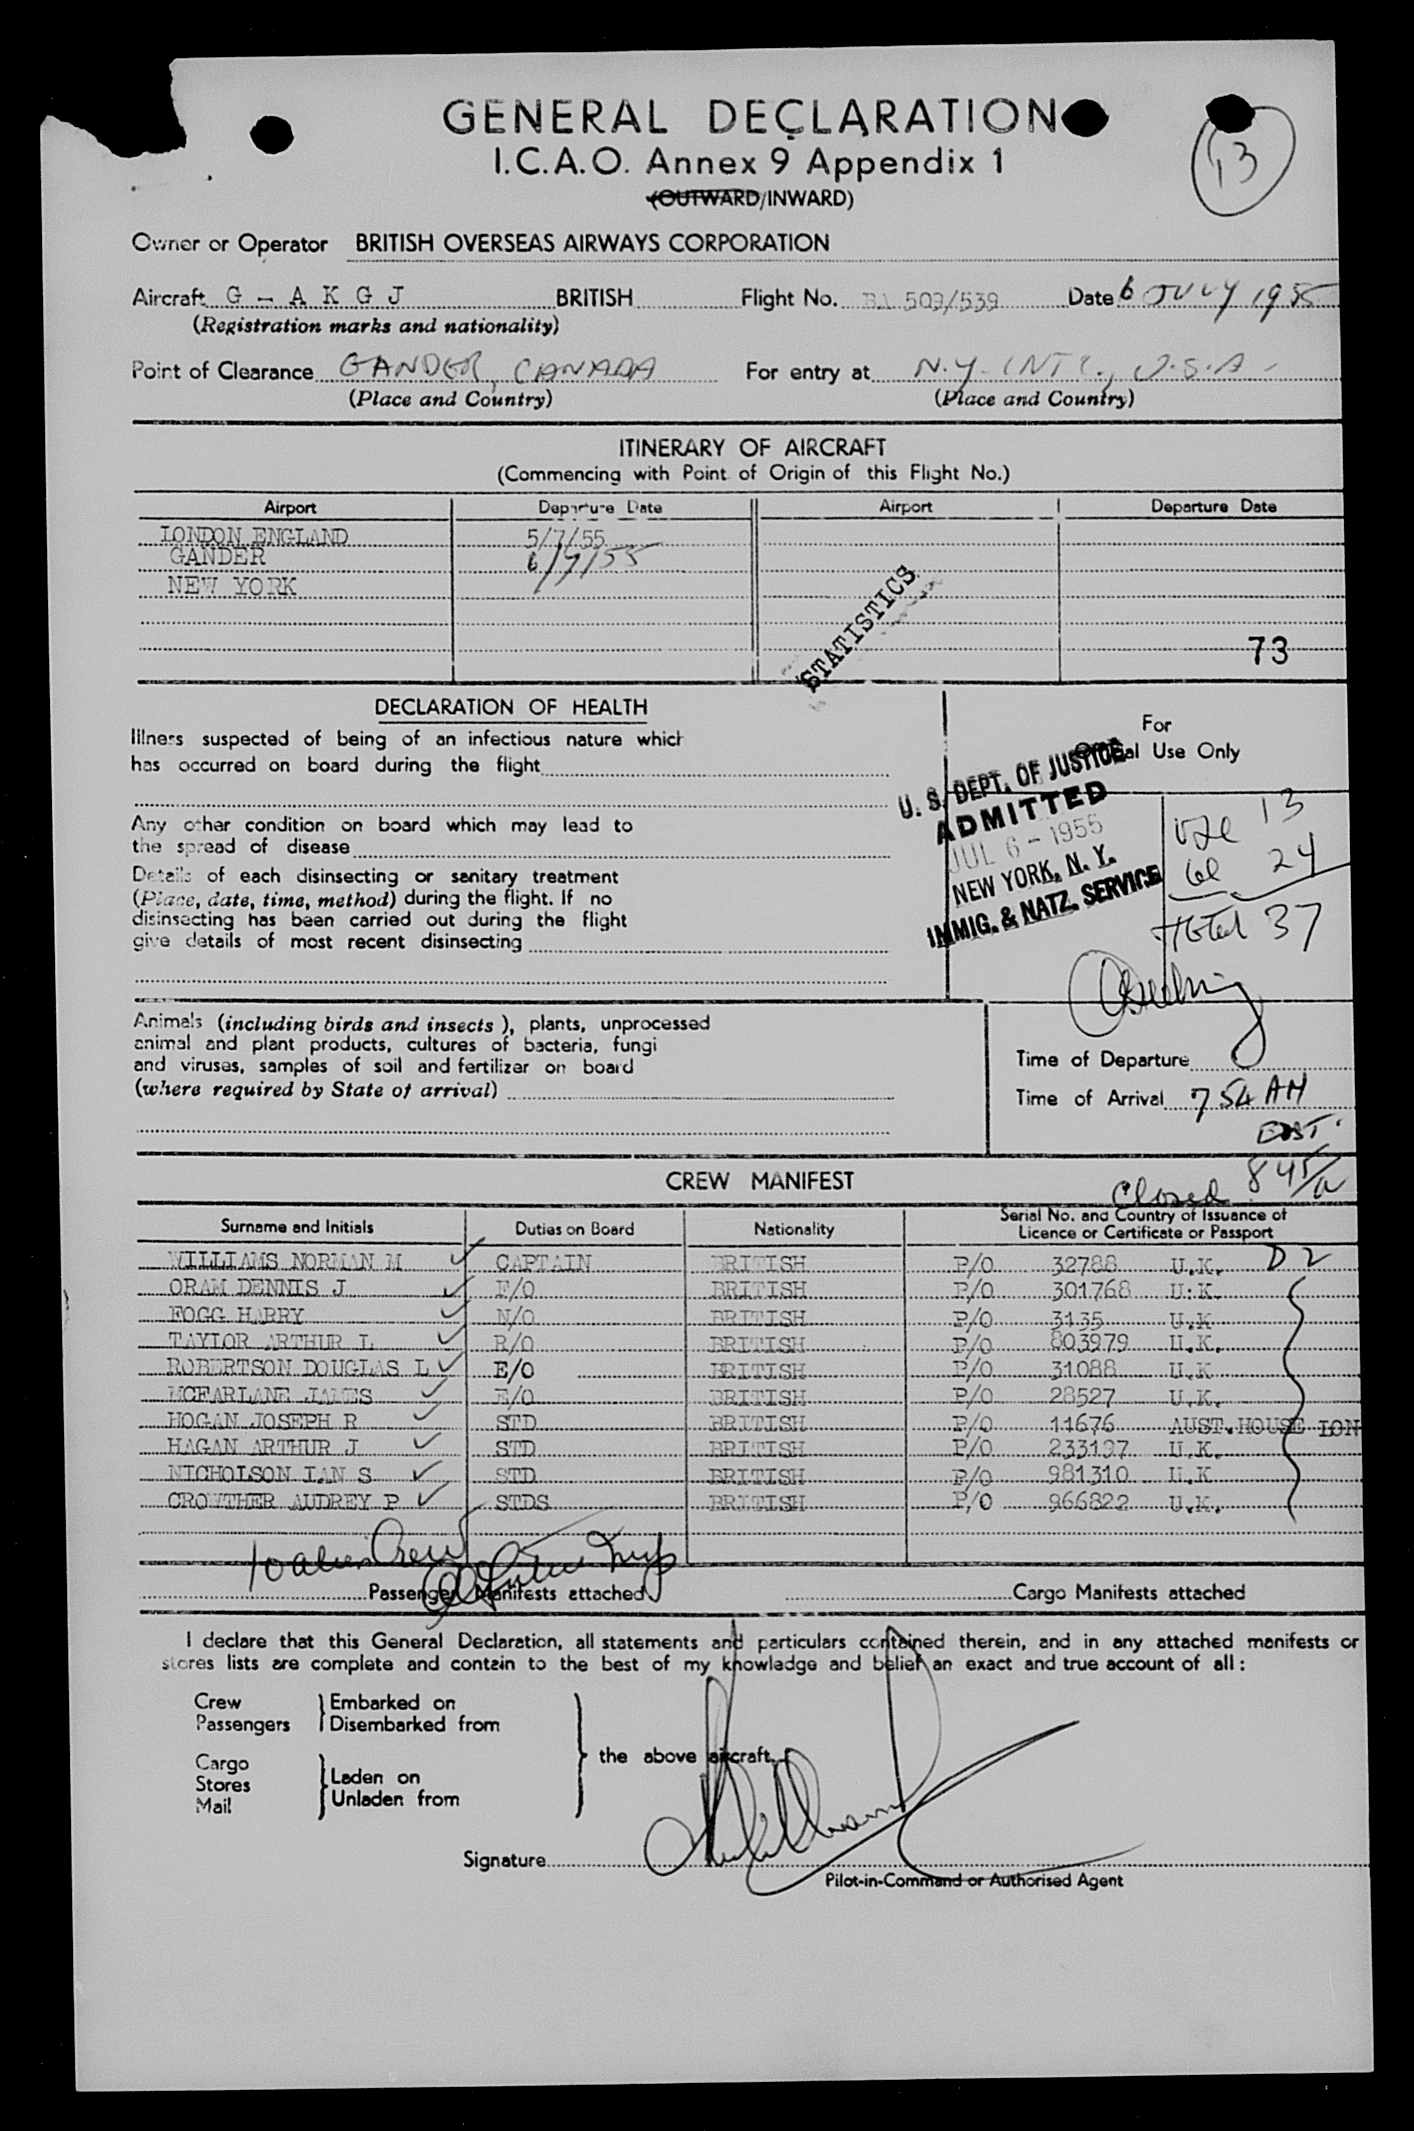 GENERAL DECLARATION
I.C.A.O. Annex 9 Appendix 1
(OUTWARD/INWARD)
13
Owner or Operator BRITISH OVERSEAS AIRWAYS CORPORATION
Aircraft G - A K G J BRITISH Flight No. BA 509/539 Date 6 JULY 1955
(Registration marks and nationality)
Point of Clearance GANDER, CANADA For entry at N.Y. INTL., U.S.A.
(Place and Country) (Place and Country)
ITINERARY OF AIRCRAFT
(Commencing with Point of Origin of this Flight No.)
Airport Departure Date Airport Departure Date
LONDON ENGLAND 5/7/55
GANDER 6/7/55
NEW YORK
STATISTICS
73
DECLARATION OF HEALTH
Illness suspected of being of an infectious nature which
has occurred on board during the flight
Any other condition on board which may lead to
the spread of disease
Details of each disinsecting or sanitary treatment
(Place, date, time, method) during the flight. If no
disinsecting has been carried out during the flight
give details of most recent disinsecting
For
Official Use Only
U. S. DEPT. OF JUSTICE
ADMITTED
JUL 6 - 1955
NEW YORK, N. Y.
IMMIG. & NATZ. SERVICE
13
24
Total 37
Animals (including birds and insects), plants, unprocessed
animal and plant products, cultures of bacteria, fungi
and viruses, samples of soil and fertilizer on board
(where required by State of arrival)
Time of Departure
Time of Arrival 7 54 AM
EDST.
Closed 845/a
CREW MANIFEST
Surname and Initials Duties on Board Nationality Serial No. and Country of Issuance of
Licence or Certificate or Passport
WILLIAMS NORMAN M CAPTAIN BRITISH P/O 32788 U.K. D 2
ORAM DENNIS J F/O BRITISH P/O 301768 U.K.
FOGG HARRY N/O BRITISH P/O 3135 U.K
TAYLOR ARTHUR L R/O BRITISH P/O 803979 U.K.
ROBERTSON DOUGLAS L E/O BRITISH P/O 31088 U.K
MCFARLANE JAMES E/O BRITISH P/O 28527 U.K.
HOGAN JOSEPH R STD BRITISH P/O 11676 AUST.HOUSE LON
HAGAN ARTHUR J STD BRITISH P/O 233197 U.K.
NICHOLSON IAN S STD BRITISH P/O 981310 U.K
CROWTHER AUDREY P STDS BRITISH P/O 966822 U.K.
10 alien Crew
Passenger Manifests attached Cargo Manifests attached
I declare that this General Declaration, all statements and particulars contained therein, and in any attached manifests or
stores lists are complete and contain to the best of my knowledge and belief an exact and true account of all :
Crew Embarked on
Passengers Disembarked from
the above aircraft.
Cargo
Stores Laden on
Mail Unladen from
Signature
Pilot-in-Command or Authorised Agent